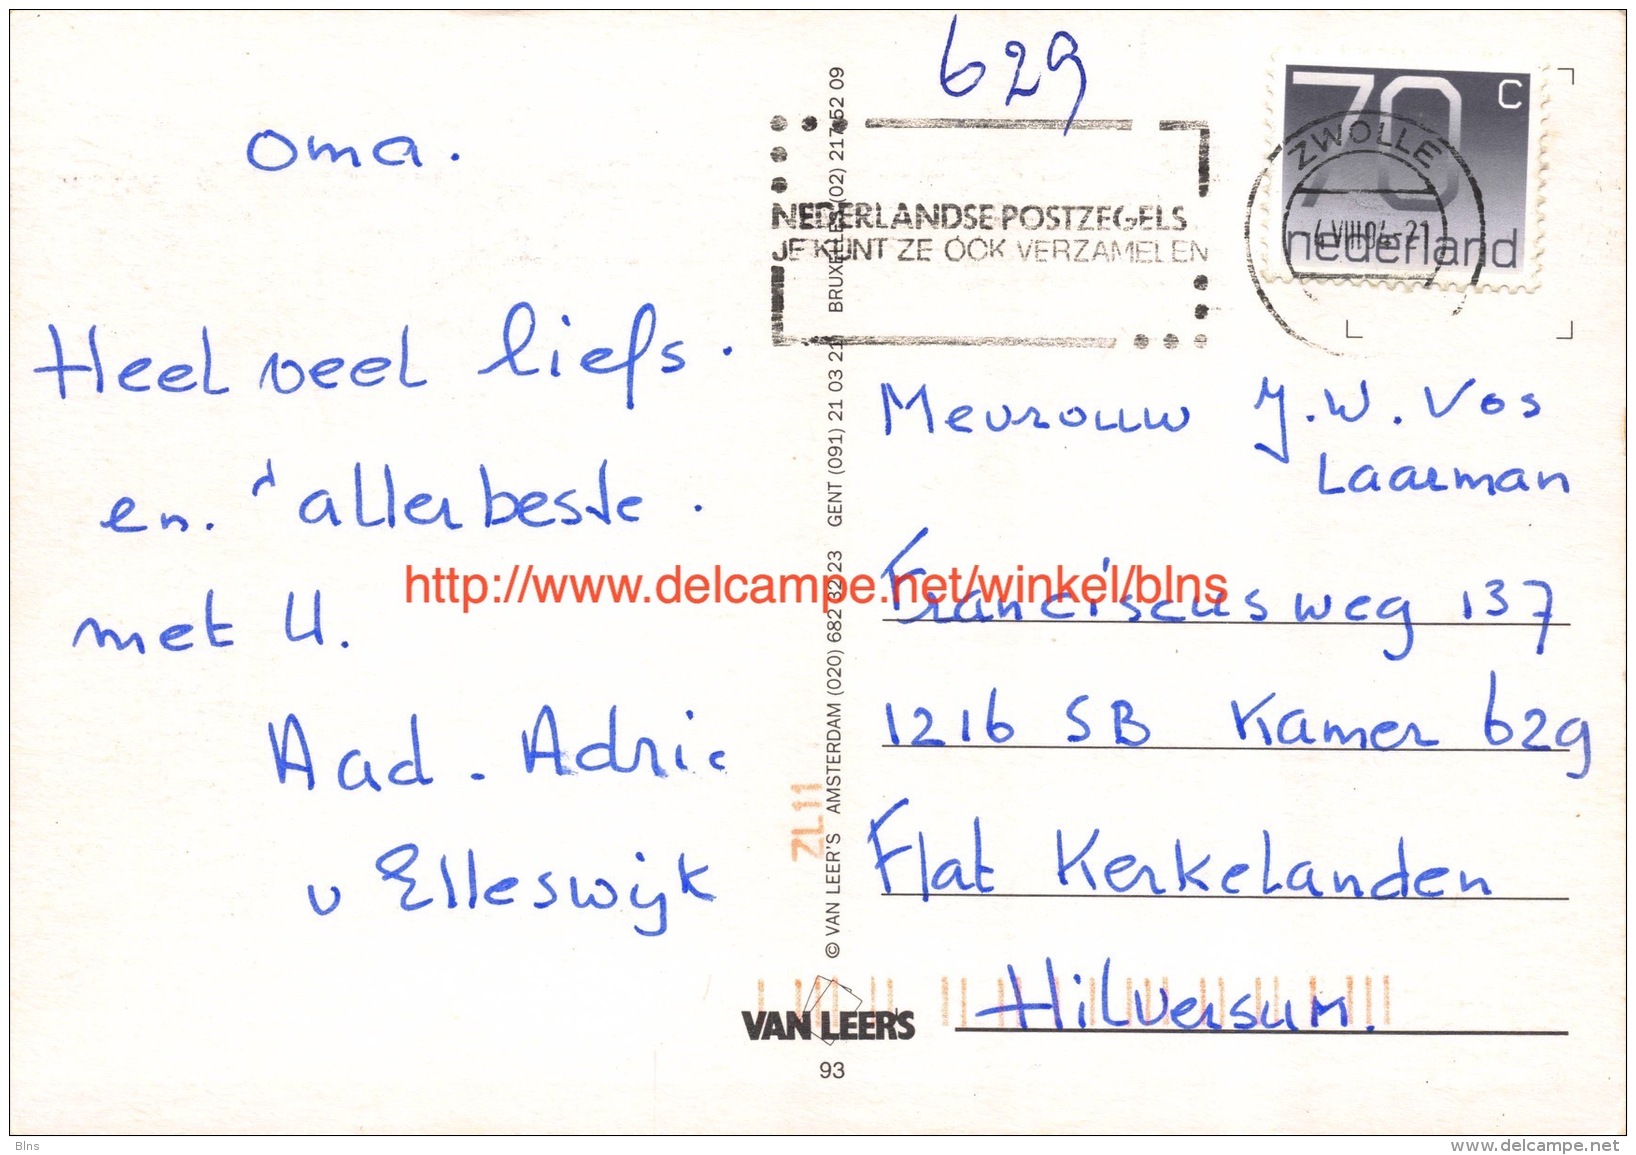 629
oma.
Heel veel liefs.
en. 't allerbeste.
met U.
Aad - Adrie
v Elleswijk
70 C
nederland
ZWOLLE
NEDERLANDSE POSTZEGELS
JE KUNT ZE OOK VERZAMELEN
Mevrouw J.W. Vos
Laarman
Franciscusweg 137
1216 SB Kamer 629
Flat Kerkelanden
Hilversum.
© VAN LEER'S AMSTERDAM (020) 682 32 23 GENT (091) 21 03 21 BRUXELLES (02) 217 52 09
ZL11
VAN LEER'S
93
http://www.delcampe.net/winkel/blns
Blns
www.delcampe.net